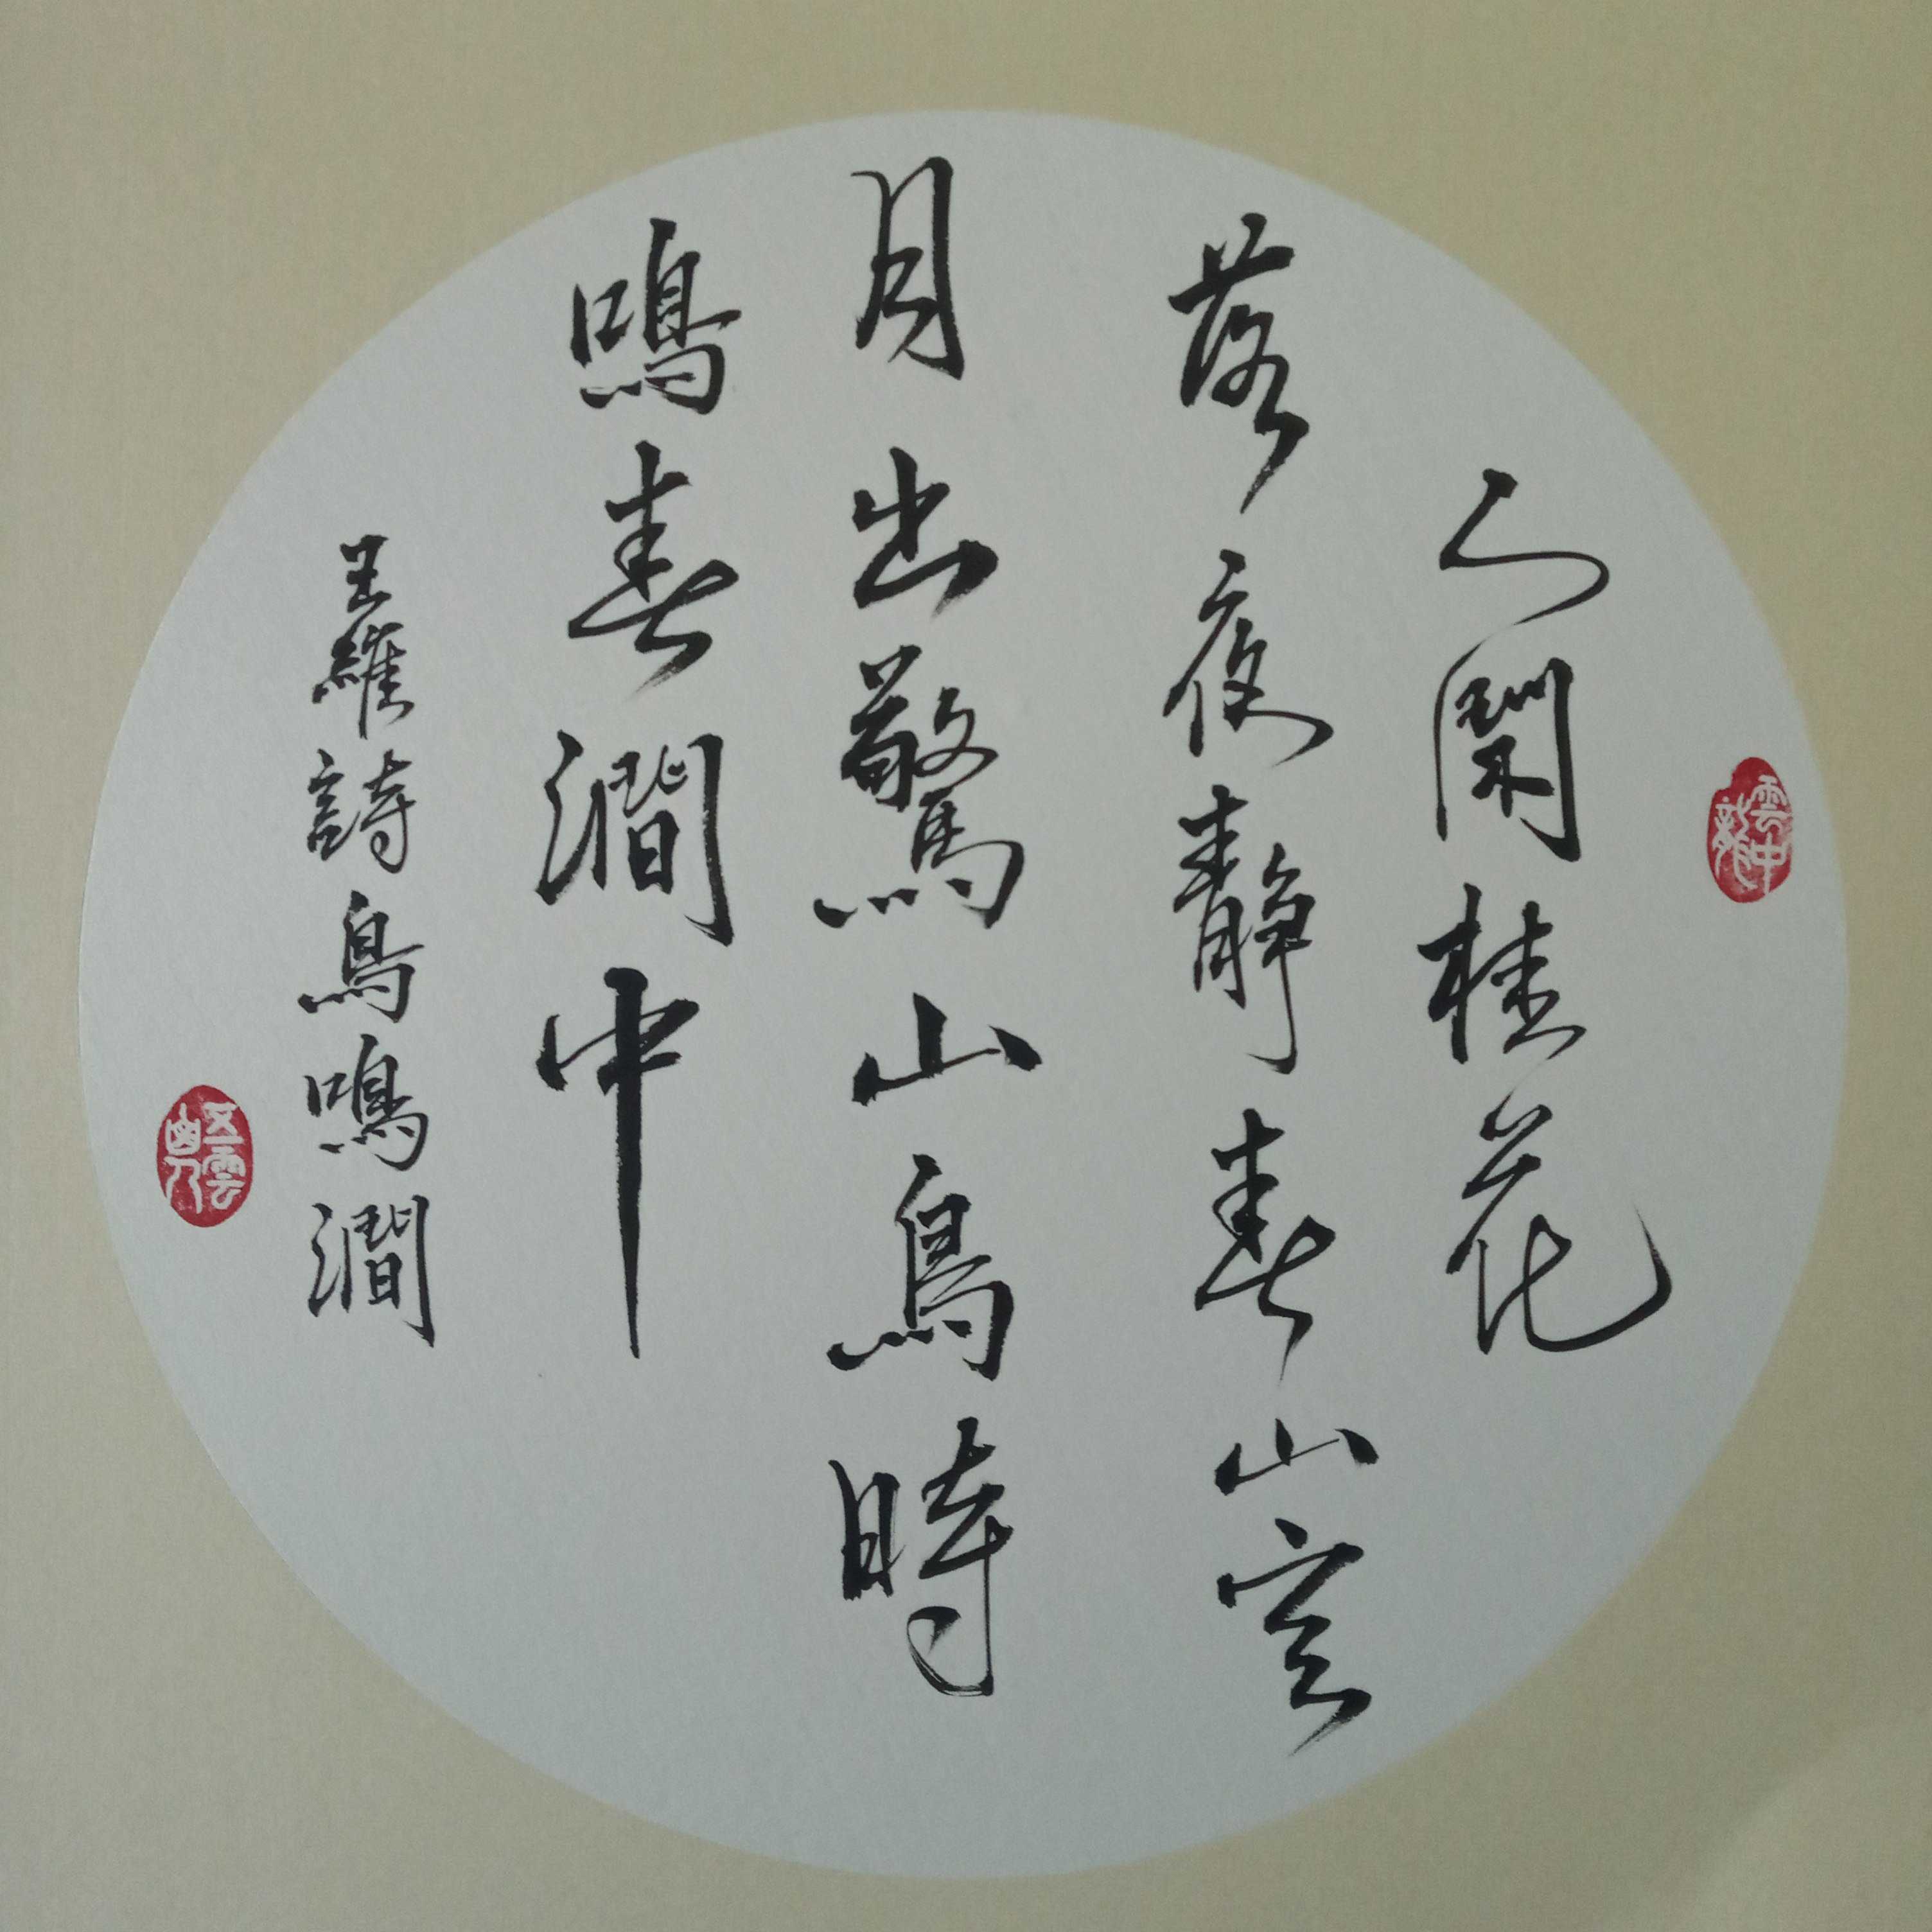 人閑桂花
落夜靜春山空
月出驚山鳥時
鳴春澗中
王維詩鳥鳴澗
雲中龍